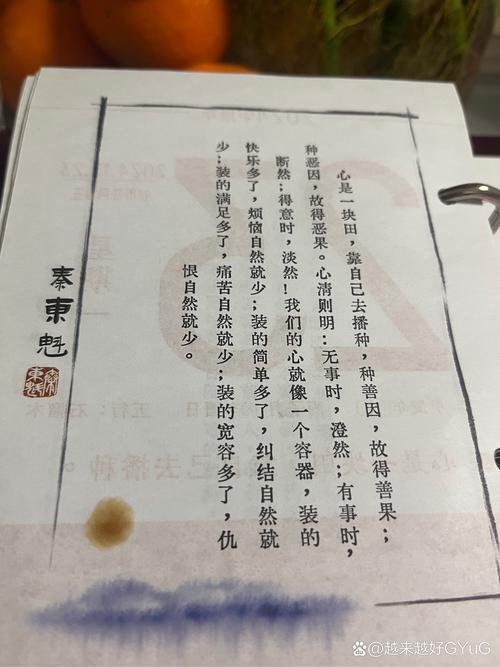 心是一块田，靠自己去播种，种善因，故得善果；
种恶因，故得恶果。心清则明：无事时，澄然；有事时，
断然；得意时，淡然！我们的心就像一个容器，装的
快乐多了，烦恼自然就少；装的简单多了，纠结自然就
少；装的满足多了，痛苦自然就少；装的宽容多了，仇
恨自然就少。
秦東魁
@越来越好GYuG